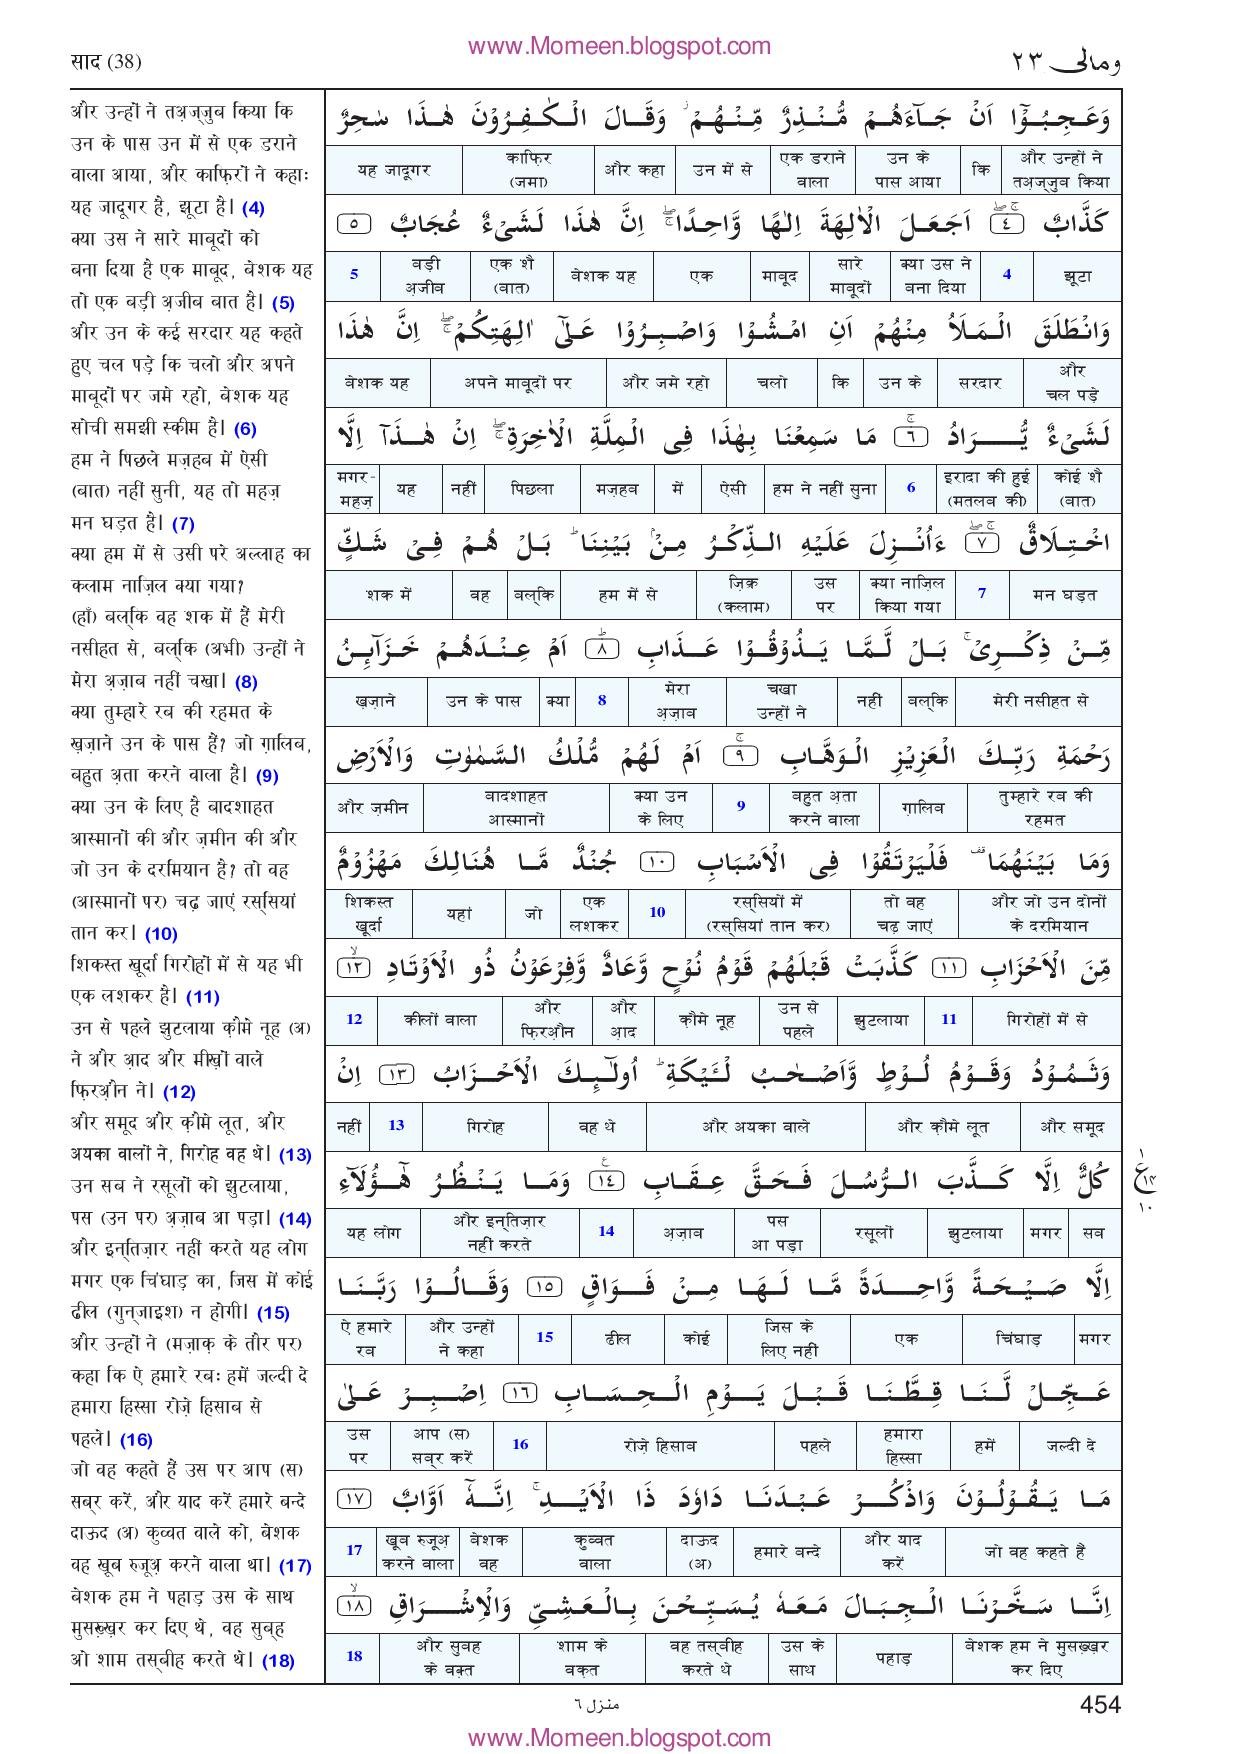 www.Momeen.blogspot.com
साद (38)
ومالی ۲۳
और उन्हों ने तअ़ज्जुब किया कि
उन के पास उन में से एक डराने
वाला आया, और काफ़िरों ने कहाः
यह जादूगर है, झूटा है। (4)
क्या उस ने सारे माबूदों को
बना दिया है एक माबूद, बेशक यह
तो एक बड़ी अ़जीब बात है। (5)
और उन के कई सरदार यह कहते
हुए चल पड़े कि चलो और अपने
माबूदों पर जमे रहो, बेशक यह
सोची समझी स्कीम है। (6)
हम ने पिछले मज़हब में ऐसी
(बात) नहीं सुनी, यह तो महज़
मन घड़त है। (7)
क्या हम में से उसी पर अल्लाह का
कलाम नाज़िल क्या गया?
(हाँ) बल्कि वह शक में हैं मेरी
नसीहत से, बल्कि (अभी) उन्हों ने
मेरा अ़ज़ाब नहीं चखा। (8)
क्या तुम्हारे रब की रहमत के
ख़ज़ाने उन के पास हैं? जो ग़ालिब,
बहुत अ़ता करने वाला है। (9)
क्या उन के लिए है बादशाहत
आस्मानों की और ज़मीन की और
जो उन के दरमियान है? तो वह
(आस्मानों पर) चढ़ जाएं रस्सियां
तान कर। (10)
शिकस्त खूर्दा गिरोहों में से यह भी
एक लशकर है। (11)
उन से पहले झुटलाया क़ौमे नूह (अ)
ने और आ़द और मीख़ों वाले
फ़िरऔ़न ने। (12)
और समूद और क़ौमे लूत, और
अयका वालों ने, गिरोह वह थे। (13)
उन सब ने रसूलों को झुटलाया,
पस (उन पर) अ़ज़ाब आ पड़ा। (14)
और इन्तिज़ार नहीं करते यह लोग
मगर एक चिंघाड़ का, जिस में कोई
ढील (गुन्जाइश) न होगी। (15)
और उन्हों ने (मज़ाक़ के तौर पर)
कहा कि ऐ हमारे रबः हमें जल्दी दे
हमारा हिस्सा रोज़े हिसाब से
पहले। (16)
जो वह कहते हैं उस पर आप (स)
सब्र करें, और याद करें हमारे बन्दे
दाऊद (अ) कुव्वत वाले को, बेशक
वह खूब रुजूअ़ करने वाला था। (17)
बेशक हम ने पहाड़ उस के साथ
मुसख़्ख़र कर दिए थे, वह सुब्ह
ओ शाम तस्बीह करते थे। (18)
وَعَجِبُوْٓا اَنْ جَآءَهُمْ مُّنْذِرٌ مِّنْهُمْ ۫ وَقَالَ الْكٰفِرُوْنَ هٰذَا سٰحِرٌ
यह जादूगर | काफ़िर (जमा) | और कहा | उन में से | एक डराने वाला | उन के पास आया | कि | और उन्हों ने तअ़ज्जुब किया
كَذَّابٌ ۝٤ اَجَعَلَ الْاٰلِهَةَ اِلٰهًا وَّاحِدًا ۖۚ اِنَّ هٰذَا لَشَىْءٌ عُجَابٌ ۝٥
5 | बड़ी अ़जीब | एक शै (बात) | बेशक यह | एक | माबूद | सारे माबूदों | क्या उस ने बना दिया | 4 | झूटा
وَانْطَلَقَ الْمَلَاُ مِنْهُمْ اَنِ امْشُوْا وَاصْبِرُوْا عَلٰٓى اٰلِهَتِكُمْ ۖۚ اِنَّ هٰذَا
बेशक यह | अपने माबूदों पर | और जमे रहो | चलो | कि | उन के | सरदार | और चल पड़े
لَشَىْءٌ يُّرَادُ ۝٦ مَا سَمِعْنَا بِهٰذَا فِى الْمِلَّةِ الْاٰخِرَةِ ۖۚ اِنْ هٰذَآ اِلَّا
मगर-महज़ | यह | नहीं | पिछला | मज़हब | में | ऐसी | हम ने नहीं सुना | 6 | इरादा की हुई (मतलब की) | कोई शै (बात)
اخْتِلَاقٌ ۝٧ ءَاُنْزِلَ عَلَيْهِ الذِّكْرُ مِنْۢ بَيْنِنَا ؕ بَلْ هُمْ فِىْ شَكٍّ
शक में | वह | बल्कि | हम में से | ज़िक्र (कलाम) | उस पर | क्या नाज़िल किया गया | 7 | मन घड़त
مِّنْ ذِكْرِىْ ۚ بَلْ لَّمَّا يَذُوْقُوْا عَذَابِ ۝٨ اَمْ عِنْدَهُمْ خَزَآئِنُ
ख़ज़ाने | उन के पास | क्या | 8 | मेरा अ़ज़ाब | चखा उन्हों ने | नहीं | बल्कि | मेरी नसीहत से
رَحْمَةِ رَبِّكَ الْعَزِيْزِ الْوَهَّابِ ۝٩ اَمْ لَهُمْ مُّلْكُ السَّمٰوٰتِ وَالْاَرْضِ
और ज़मीन | बादशाहत आस्मानों | क्या उन के लिए | 9 | बहुत अ़ता करने वाला | ग़ालिब | तुम्हारे रब की रहमत
وَمَا بَيْنَهُمَا ۫ فَلْيَرْتَقُوْا فِى الْاَسْبَابِ ۝١٠ جُنْدٌ مَّا هُنَالِكَ مَهْزُوْمٌ
शिकस्त खूर्दा | यहां | जो | एक लशकर | 10 | रस्सियों में (रस्सियां तान कर) | तो वह चढ़ जाएं | और जो उन दोनों के दरमियान
مِّنَ الْاَحْزَابِ ۝١١ كَذَّبَتْ قَبْلَهُمْ قَوْمُ نُوْحٍ وَّعَادٌ وَّفِرْعَوْنُ ذُو الْاَوْتَادِ ۝١٢
12 | कीलों वाला | और फ़िरऔ़न | और आ़द | क़ौमे नूह | उन से पहले | झुटलाया | 11 | गिरोहों में से
وَثَمُوْدُ وَقَوْمُ لُوْطٍ وَّاَصْحٰبُ لْئَيْكَةِ ؕ اُولٰٓئِكَ الْاَحْزَابُ ۝١٣ اِنْ
नहीं | 13 | गिरोह | वह थे | और अयका वाले | और क़ौमे लूत | और समूद
كُلٌّ اِلَّا كَذَّبَ الرُّسُلَ فَحَقَّ عِقَابِ ۝١٤ وَمَا يَنْظُرُ هٰٓؤُلَآءِ
यह लोग | और इन्तिज़ार नहीं करते | 14 | अ़ज़ाब | पस आ पड़ा | रसूलों | झुटलाया | मगर | सब
١ ع ١٤ ١٠
اِلَّا صَيْحَةً وَّاحِدَةً مَّا لَهَا مِنْ فَوَاقٍ ۝١٥ وَقَالُوْا رَبَّنَا
ऐ हमारे रब | और उन्हों ने कहा | 15 | ढील | कोई | जिस के लिए नहीं | एक | चिंघाड़ | मगर
عَجِّلْ لَّنَا قِطَّنَا قَبْلَ يَوْمِ الْحِسَابِ ۝١٦ اِصْبِرْ عَلٰى
उस पर | आप (स) सब्र करें | 16 | रोज़े हिसाब | पहले | हमारा हिस्सा | हमें | जल्दी दे
مَا يَقُوْلُوْنَ وَاذْكُرْ عَبْدَنَا دَاوٗدَ ذَا الْاَيْدِ ۚ اِنَّهٗٓ اَوَّابٌ ۝١٧
17 | खूब रुजूअ़ करने वाला | बेशक वह | कुव्वत वाला | दाऊद (अ) | हमारे बन्दे | और याद करें | जो वह कहते हैं
اِنَّا سَخَّرْنَا الْجِبَالَ مَعَهٗ يُسَبِّحْنَ بِالْعَشِىِّ وَالْاِشْرَاقِ ۝١٨
18 | और सुबह के वक़्त | शाम के वक़्त | वह तस्बीह करते थे | उस के साथ | पहाड़ | बेशक हम ने मुसख़्ख़र कर दिए
منزل ٦
454
www.Momeen.blogspot.com